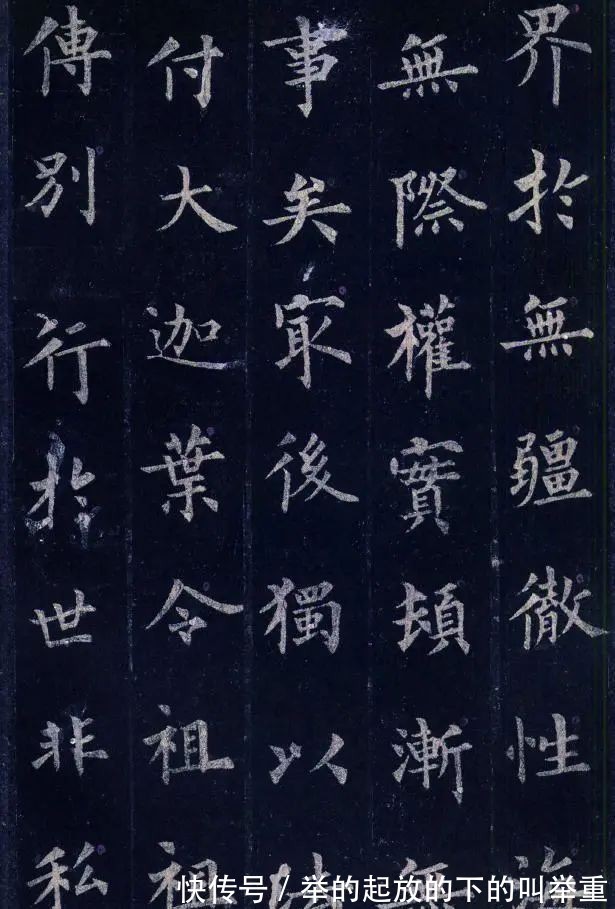 界扵無疆徹性
無際權實頓漸無
事矣㝡後獨以
付大迦葉令祖祖
傳別行扵世非私
快传号 / 举的起放的下的叫举重